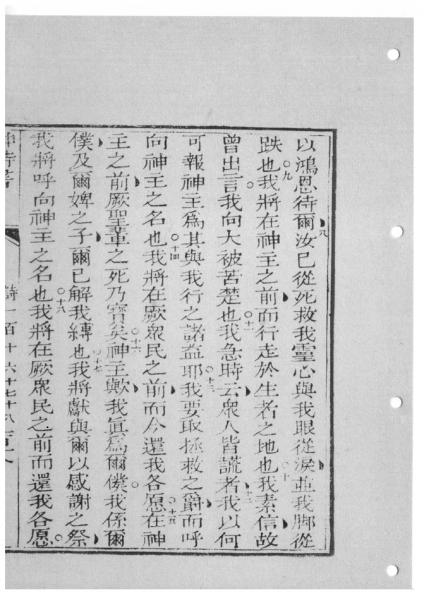 以鴻恩待爾汝已從死救我靈心與我眼從淚並我脚從
跌也○九我將在神主之前而行走於生者之地也○十我素信故
曾出言我向大被苦楚也○十一我急時云衆人皆謊者○十二我以何
可報神主爲其與我行之諸益耶○十三我要取拯救之爵而呼
向神主之名也○十四我將在厥衆民之前而今還我各愿○十五在神
主之前厥聖輩之死乃寶矣○十六神主歟我眞爲爾僕我係爾
僕及爾婢之子爾已解我縛也○十七我將獻與爾以感謝之祭
我將呼向神主之名也○十八我將在厥衆民之前而還我各愿
詩一百十六十七十八